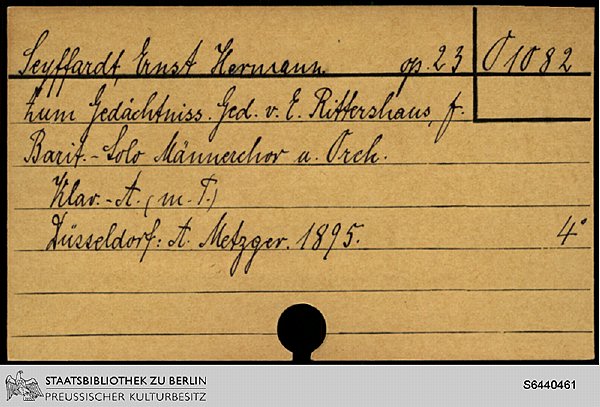 Seyffardt, Ernst Hermann op. 23 O 1082
Zum Gedächtniss. Ged. v. E. Rittershaus, f.
Barit.-Solo Männerchor u. Orch.
Klav.-A. (m. T.)
Düsseldorf: A. Metzger. 1895. 4°
STAATSBIBLIOTHEK ZU BERLIN
PREUSSISCHER KULTURBESITZ
S6440461